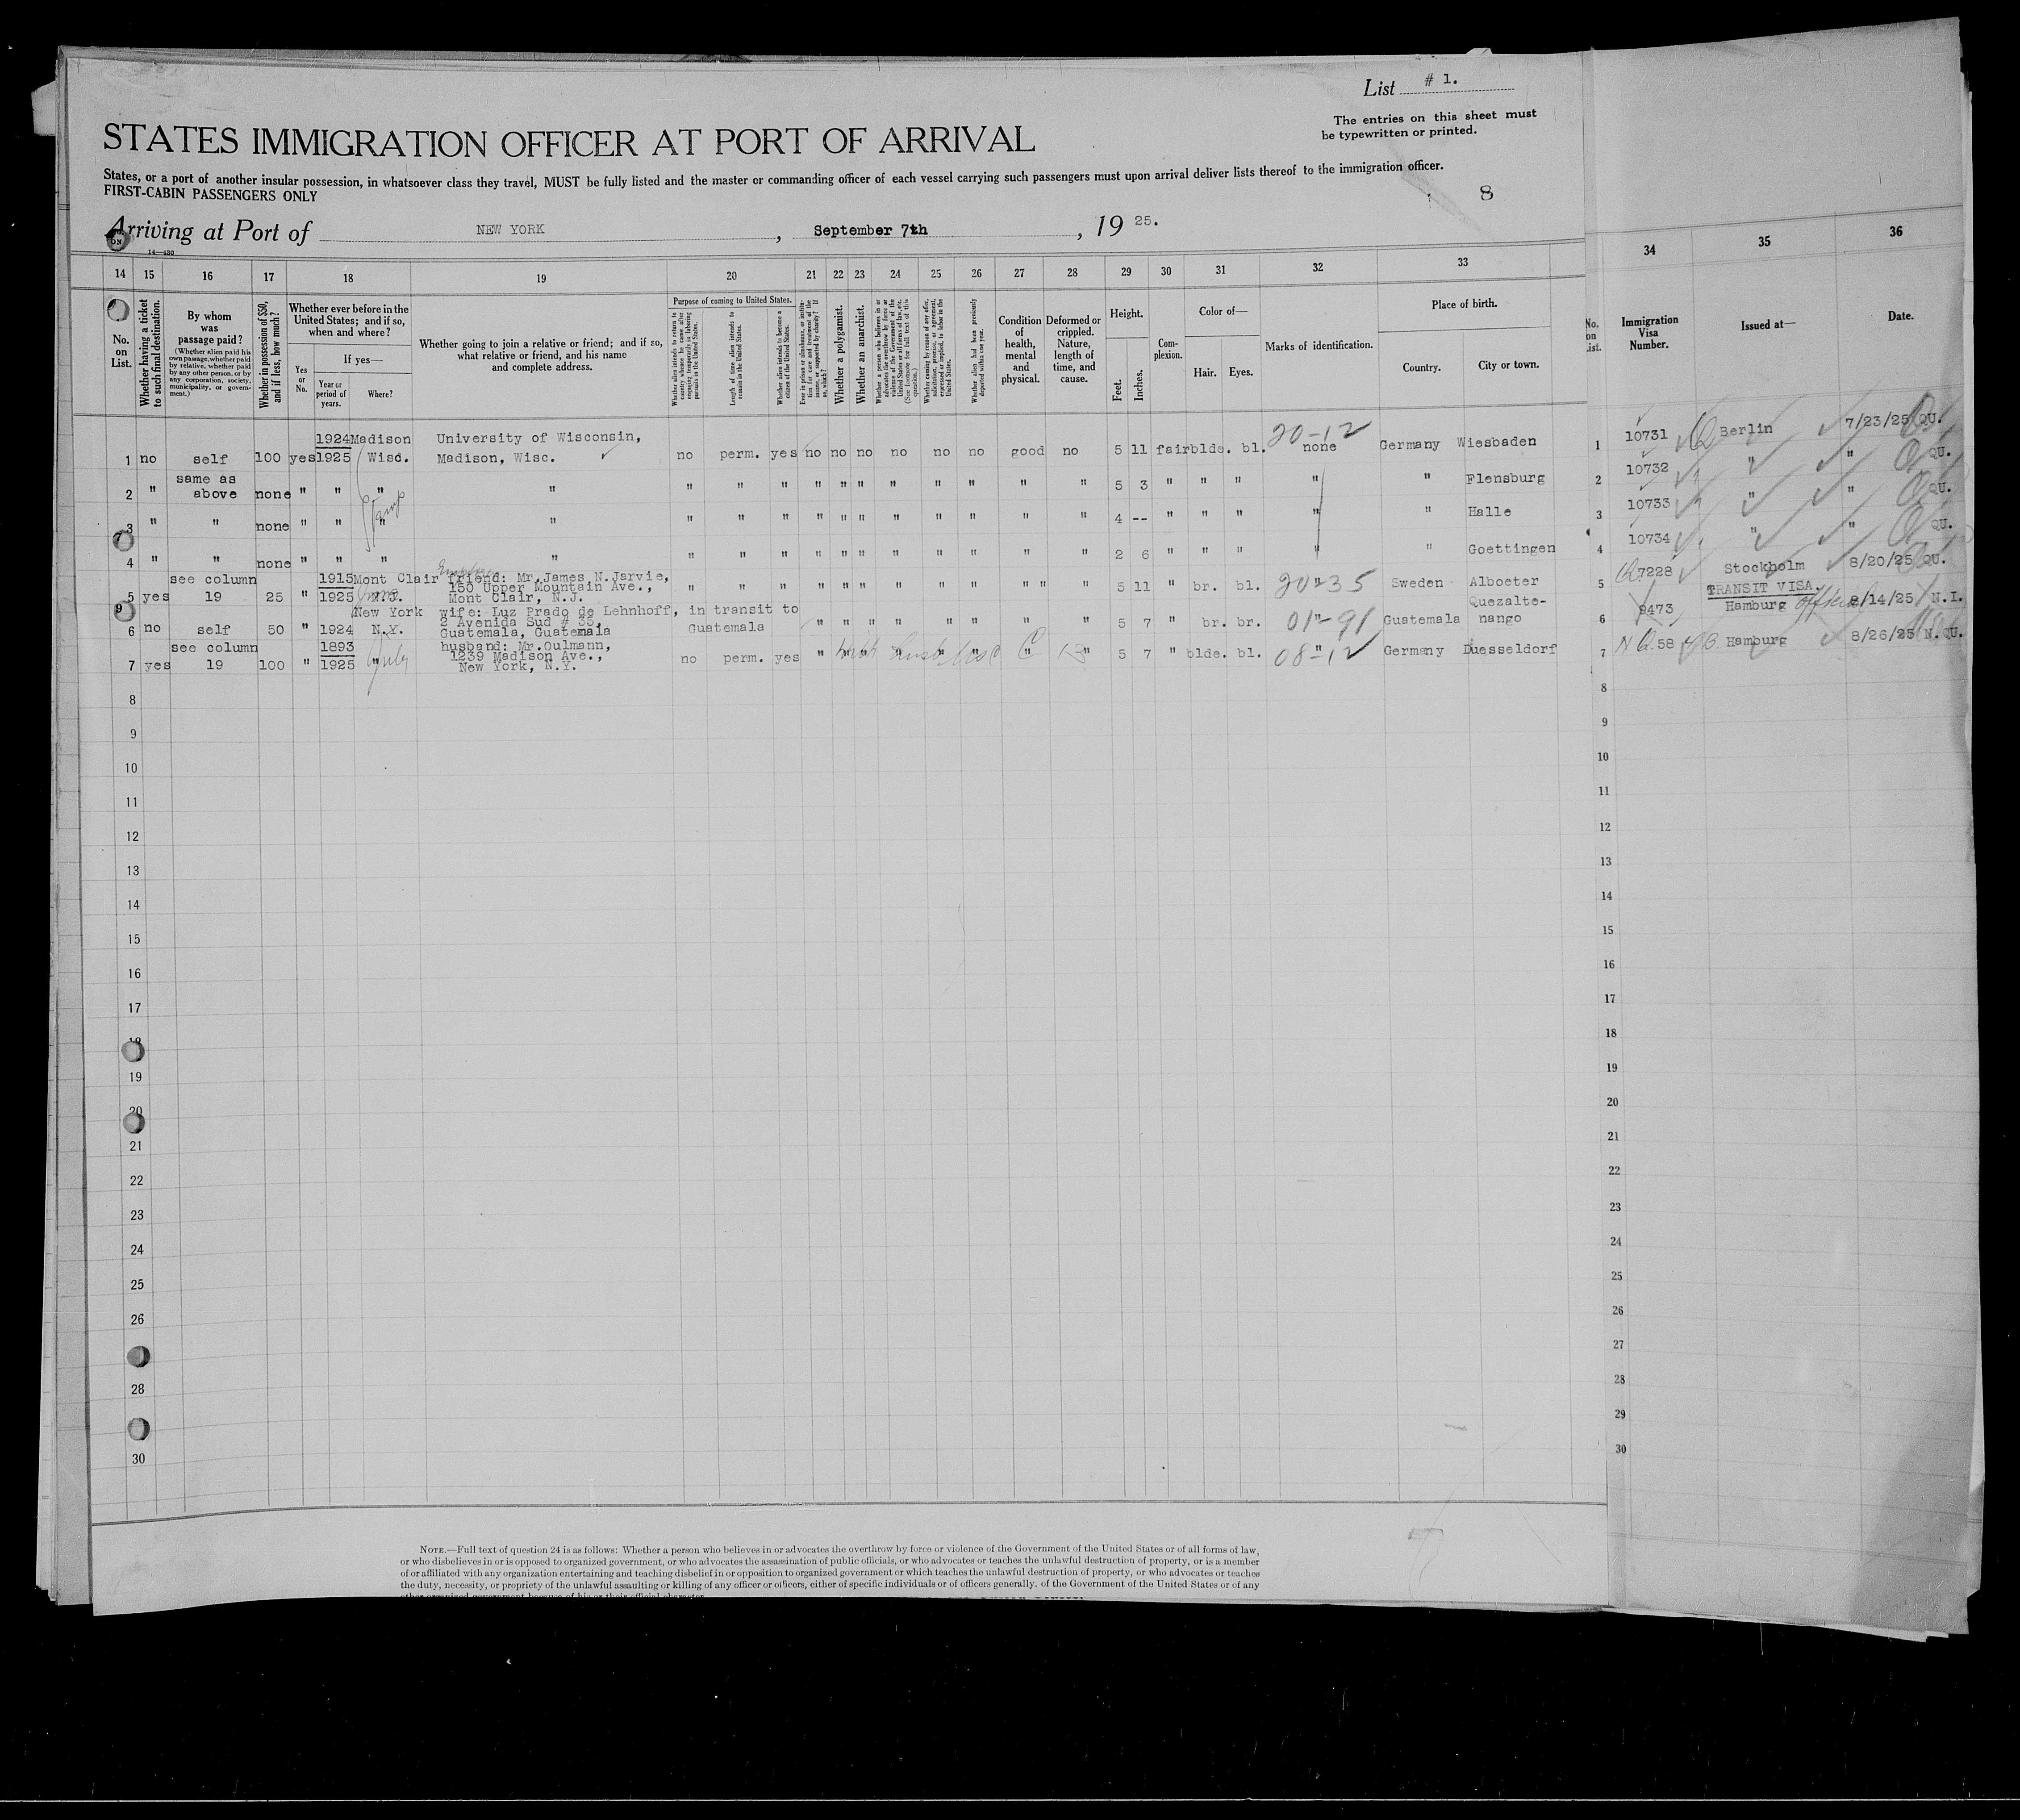 List # 1.
The entries on this sheet must
be typewritten or printed.
STATES IMMIGRATION OFFICER AT PORT OF ARRIVAL
States, or a port of another insular possession, in whatsoever class they travel, MUST be fully listed and the master or commanding officer of each vessel carrying such passengers must upon arrival deliver lists thereof to the immigration officer.
FIRST-CABIN PASSENGERS ONLY
8
Arriving at Port of NEW YORK, September 7th, 19 25.
14 15 16 17 18 19 20 21 22 23 24 25 26 27 28 29 30 31 32 33 34 35 36
No. on List.
Whether having a ticket to such final destination.
By whom was passage paid?
(Whether alien paid his own passage, whether paid by relative, whether paid by any other person, or by any corporation, society, municipality, or government.)
Whether in possession of $50, and if less, how much?
Whether ever before in the United States; and if so, when and where?
Yes or No.
If yes—
Year or period of years.
Where?
Whether going to join a relative or friend; and if so, what relative or friend, and his name and complete address.
Purpose of coming to United States.
Whether alien intends to return to country whence he came after engaging temporarily in laboring pursuits in the United States.
Length of time alien intends to remain in the United States.
Whether alien intends to become a citizen of the United States.
Whether a polygamist.
Whether an anarchist.
Condition of health, mental and physical.
Deformed or crippled. Nature, length of time, and cause.
Height.
Feet.
Inches.
Complexion.
Color of—
Hair.
Eyes.
Marks of identification.
Place of birth.
Country.
City or town.
No. on List.
Immigration Visa Number.
Issued at—
Date.
1924 Madison University of Wisconsin, 20-12
1 no self 100 yes 1925 Wisc. Madison, Wisc. no perm. yes no no no no no no good no 5 11 fair blde. bl. none Germany Wiesbaden 1 10731 Berlin 7/23/25 QU.
same as
2 " above none " " " " " " " " " " " " " " " 5 3 " " " " " Flensburg 2 10732 " " QU.
3 " " none " " " " " " " " " " " " " " " 4 -- " " " " " Halle 3 10733 " " QU.
4 " " none " " " " " " " " " " " " " " " 2 6 " " " " " Goettingen 4 10734 " " QU.
see column 1915 Mont Clair friend: Mr. James N. Jarvie,
150 Upper Mountain Ave.,
5 yes 19 25 " 1925 N.J. Mont Clair, N.J. " " " " " " " " " " " 5 11 " br. bl. 20-35 " Sweden Alboeter 5 7228 Stockholm 8/20/25 QU.
New York wife: Luz Prado de Lehnhoff, in transit to Quezalte-
2 Avenida Sud # 35, TRANSIT VISA.
6 no self 50 " 1924 N.Y. Guatemala, Guatemala Guatemala " " " " " " " " 5 7 " br. br. 01-91 " Guatemala nango 6 9473 Hamburg 8/14/25 N.I.
see column 1893 husband: Mr. Oulmann,
1239 Madison Ave.,
7 yes 19 100 " 1925 " July New York, N.Y. no perm. yes " " " " " " " " 5 7 " blde. bl. 08-12 " Germany Duesseldorf 7 58 Hamburg 8/26/25 N.QU.
8 8
9 9
10 10
11 11
12 12
13 13
14 14
15 15
16 16
17 17
18 18
19 19
20 20
21 21
22 22
23 23
24 24
25 25
26 26
27
28 28
29
30 30
NOTE.—Full text of question 24 is as follows: Whether a person who believes in or advocates the overthrow by force or violence of the Government of the United States or of all forms of law,
or who disbelieves in or is opposed to organized government, or who advocates the assassination of public officials, or who advocates or teaches the unlawful destruction of property, or is a member
of or affiliated with any organization entertaining and teaching disbelief in or opposition to organized government or which teaches the unlawful destruction of property, or who advocates or teaches
the duty, necessity, or propriety of the unlawful assaulting or killing of any officer or officers, either of specific individuals or of officers generally, of the Government of the United States or of any